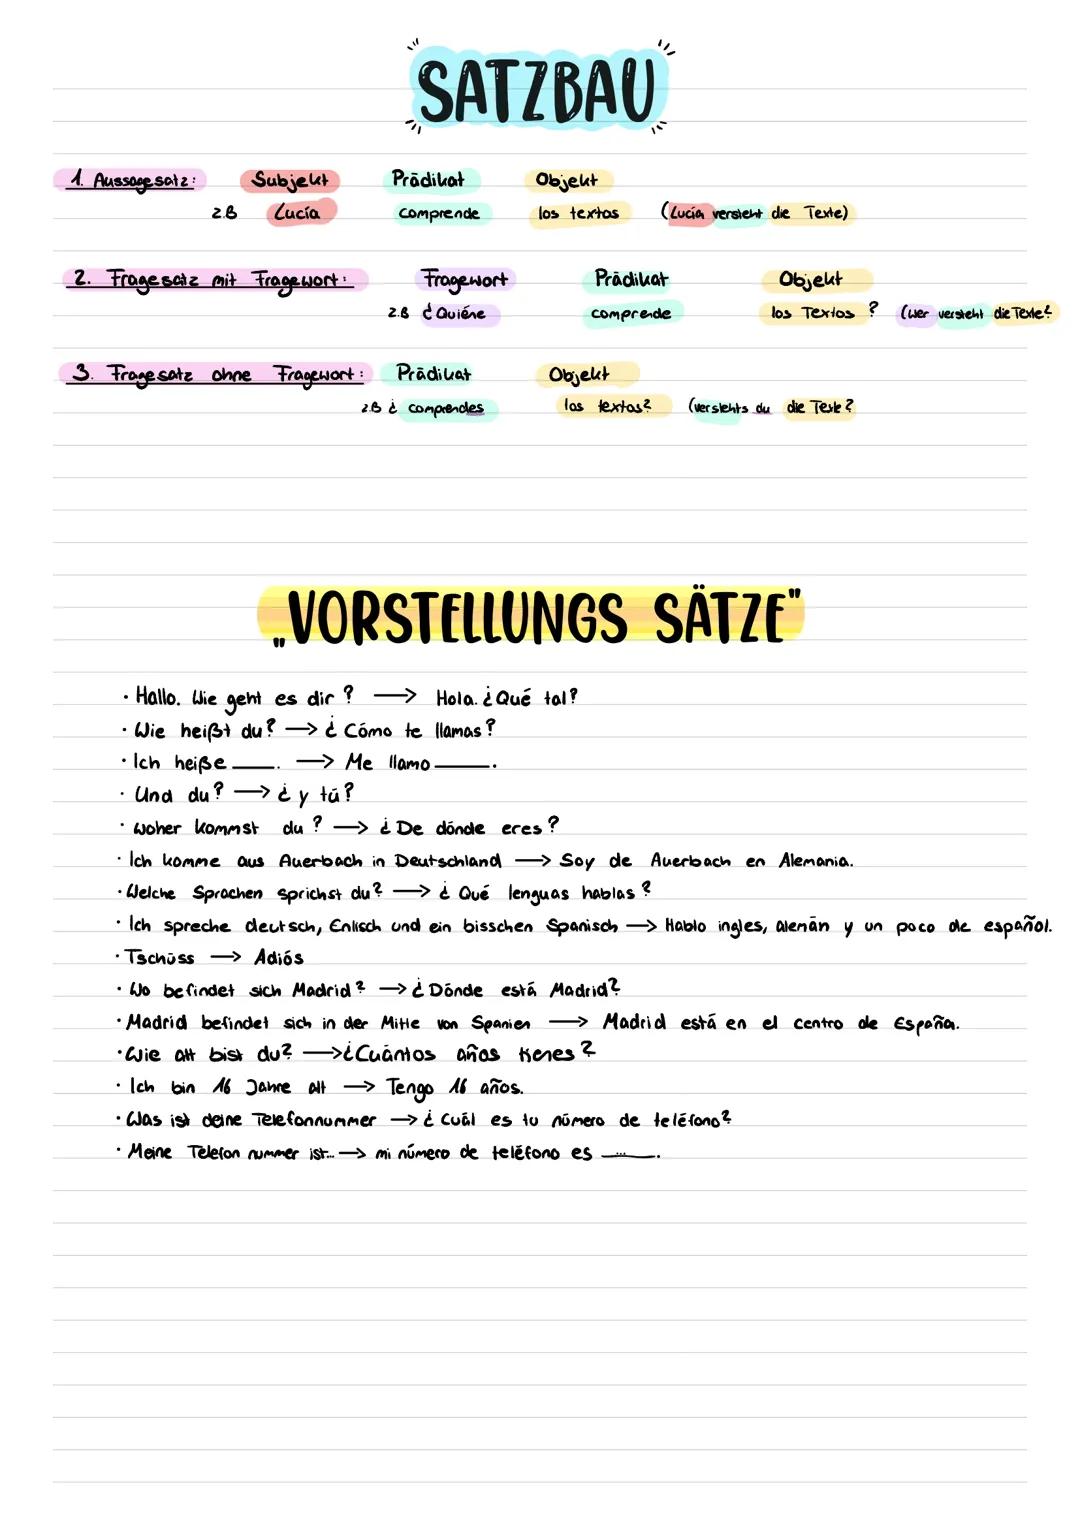 SATZBAU
1. Aussagesatz: Subjekt Prädikat Objekt
z.B Lucía comprende los textos (Lucía versteht die Texte)
2. Fragesatz mit Fragewort: Fragewort Prädikat Objekt
z.B ¿Quiéne comprende los Textos ? (Wer versteht die Texte?
3. Fragesatz ohne Fragewort: Prädikat Objekt
z.B ¿ comprendes los textos? (verstehts du die Texte?
„VORSTELLUNGS SÄTZE"
· Hallo. Wie geht es dir ? → Hola. ¿Qué tal?
· Wie heißt du? → ¿ Cómo te llamas?
· Ich heiße ____. → Me llamo ____.
· Und du? → ¿ y tú?
· woher kommst du ? → ¿ De dónde eres?
· Ich komme aus Auerbach in Deutschland → Soy de Auerbach en Alemania.
· Welche Sprachen sprichst du? → ¿ Qué lenguas hablas ?
· Ich spreche deutsch, Enlisch und ein bisschen Spanisch → Hablo ingles, alemán y un poco de español.
· Tschüss → Adiós
· Wo befindet sich Madrid? → ¿ Dónde está Madrid?
· Madrid befindet sich in der Mitte von Spanien → Madrid está en el centro de España.
· Wie alt bist du? → ¿Cuántos años tienes?
· Ich bin 16 Jahre alt → Tengo 16 años.
· Was ist deine Telefonnummer → ¿ Cuál es tu número de teléfono?
· Meine Telefon nummer ist... → mi número de teléfono es ....